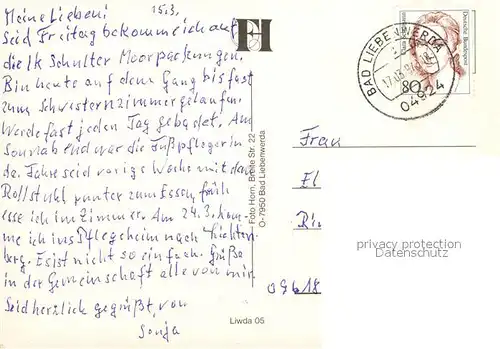 Meine Lieben! 15.3.
Seid Freitag bekomme ich auf
die lk Schulter Moorpackungen.
Bin heute auf dem Gang bis fast
zum Schwesternzimmer gelaufen.
Werde fast jeden Tag gebadet. Am
Sonnabend war die Fußpflegerin
da. Fahre seid vorige Woche mit dem
Rollstuhl runter zum Essen, früh
esse ich im Zimmer. Am 24.3. kom-
me ich ins Pflegeheim nach Lichten-
berg. Es ist nicht so einfach. Grüße
in der Gemeinschaft alle von mir.
Seid herzlich gegrüßt, von
Sonja
Foto Horn, Breite Str. 22
O-7950 Bad Liebenwerda
Liwda 05
BAD LIEBENWERDA
04924
Deutsche Bundespost
80
Frau
El
Ri
09618
privacy protection
Datenschutz